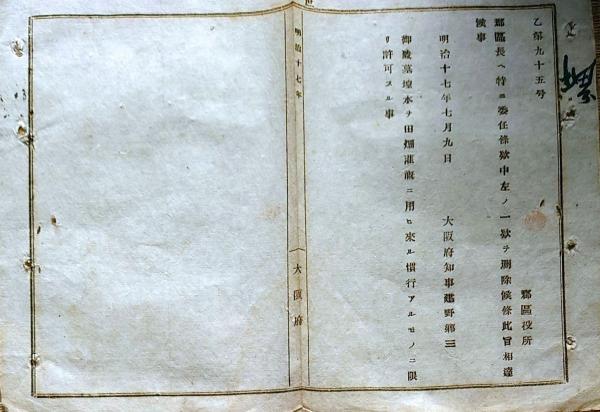 乙第九十五号
郡區役所
郡區長ヘ特ニ委任條欵中左ノ一欵ヲ刪除候條此旨相達
候事
明治十七年七月九日
大阪府知事建野郷三
御陵墓堤水ヲ田畑灌漑ニ用ヒ來ル慣行アルモノニ限
リ許可スル事
明治十七年
大阪府